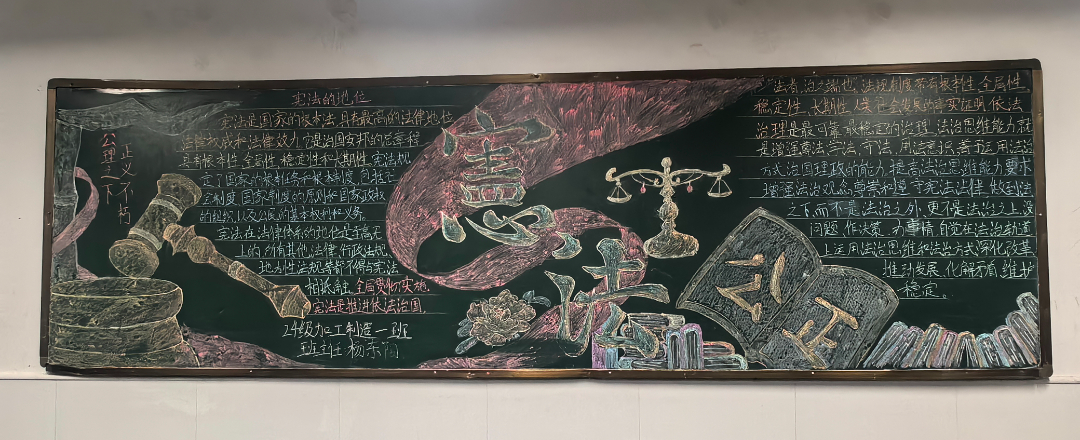 公理之下
正义不朽
宪法的地位
宪法是国家的根本法,具有最高的法律地位
法律权威和法律效力,它是治国安邦的总章程
具有根本性、全局性、稳定性和长期性,宪法规
定了国家的根本任务和根本制度,包括
制度,国家制度的原则和国家政权
的组织以及公民的基本权利和义务。
宪法在法律体系的地位是至高无
上的,所有其他法律、行政法规、
地方性法规等都不得与宪法
相抵触,全面贯彻实施
宪法是推进依法治国。
24级加工制造一班
班主任
宪
法
公
正
“法者,治之端也”法规制度带有根本性、全局性、
稳定性、长期性,证明,依法
治理是最可靠、最稳定的治理,法治思维能力就
是增强尊法学法、守法、用法意识、善于运用法治
方式治国理政的能力,提高法治思维能力要求
增强法治观念,尊崇和遵守宪法法律,做到法
之下,而不是法治之外,更不是法治之上,没
问题、作决策、办事情,自觉在法治轨道
上运用法治思维和法治方式深化改革、
推动发展、化解矛盾、维护
稳定。